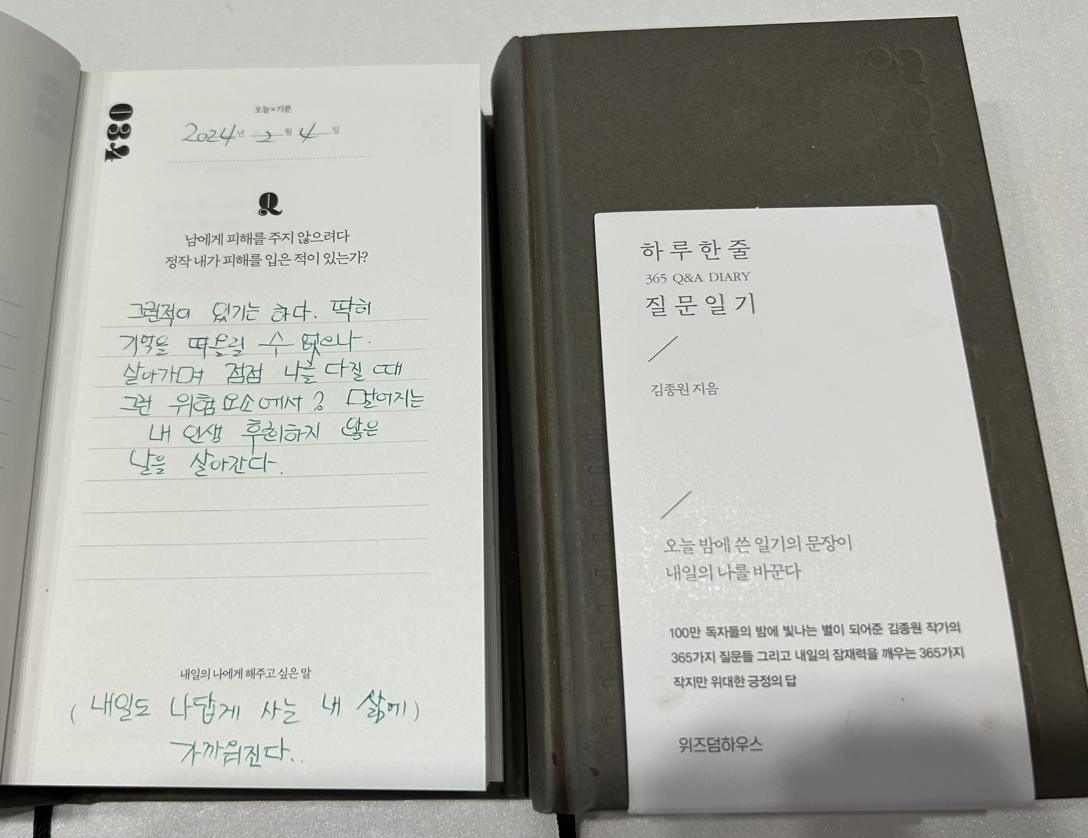 034
오늘×기분
2024년 2월 4일
Q
남에게 피해를 주지 않으려다
정작 내가 피해를 입은 적이 있는가?
그런적이 있기는 하다. 딱히
기억을 떠올릴 수 없으나.
살아가며 점점 나를 다질 때
그런 위험 요소에서 멀어지는
내 인생 후회하지 않은
날을 살아간다.
내일의 나에게 해주고 싶은 말
(내일도 나답게 사는 내 삶에)
가까워진다..
하루 한 줄
365 Q&A DIARY
질문 일기
김종원 지음
오늘 밤에 쓴 일기의 문장이
내일의 나를 바꾼다
100만 독자들의 밤에 빛나는 별이 되어준 김종원 작가의
365가지 질문들 그리고 내일의 잠재력을 깨우는 365가지
작지만 위대한 긍정의 답
위즈덤하우스